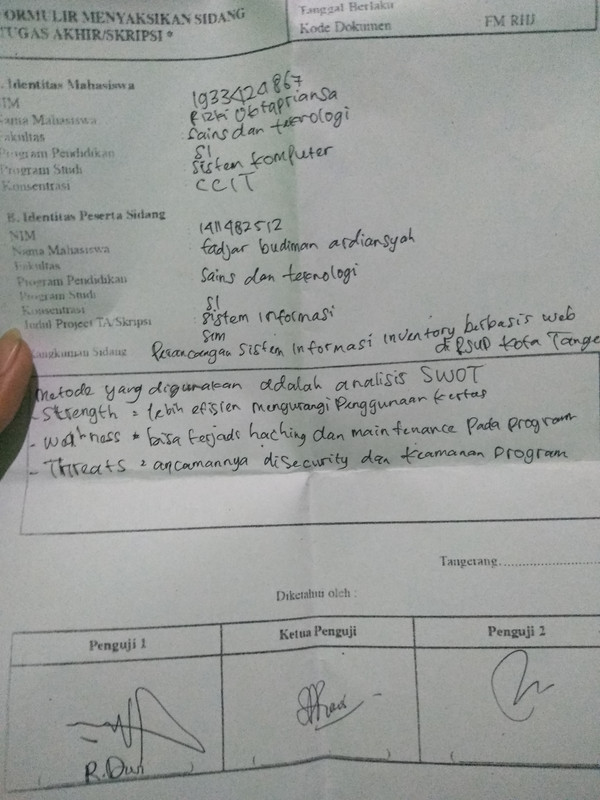 FORMULIR MENYAKSIKAN SIDANG
TUGAS AKHIR/SKRIPSI *
Tanggal Berlaku
Kode Dokumen FM RHJ
. Identitas Mahasiswa
NIM 1933424867
Nama Mahasiswa Rizki Oktapriansa
Fakultas Sains dan teknologi
Program Pendidikan S1
Program Studi Sistem Komputer
Konsentrasi CCIT
B. Identitas Peserta Sidang
NIM 1411482512
Nama Mahasiswa fadjar budiman ardiansyah
Fakultas
Program Pendidikan Sains dan teknologi
Program Studi S1
Konsentrasi Sistem Informasi
Judul Project TA/Skripsi SIM
Rangkuman Sidang Perancangan Sistem Informasi Inventory berbasis web
di RSUD Kota Tange
Metode yang digunakan adalah analisis SWOT
- Strength = lebih efisien mengurangi Penggunaan kertas
- Weakness = bisa terjadi hacking dan maintenance Pada program
- Threats = ancamannya di Security dan keamanan Program
Tangerang....................
Diketahui oleh :
Penguji 1 Ketua Penguji Penguji 2
R. Dwi